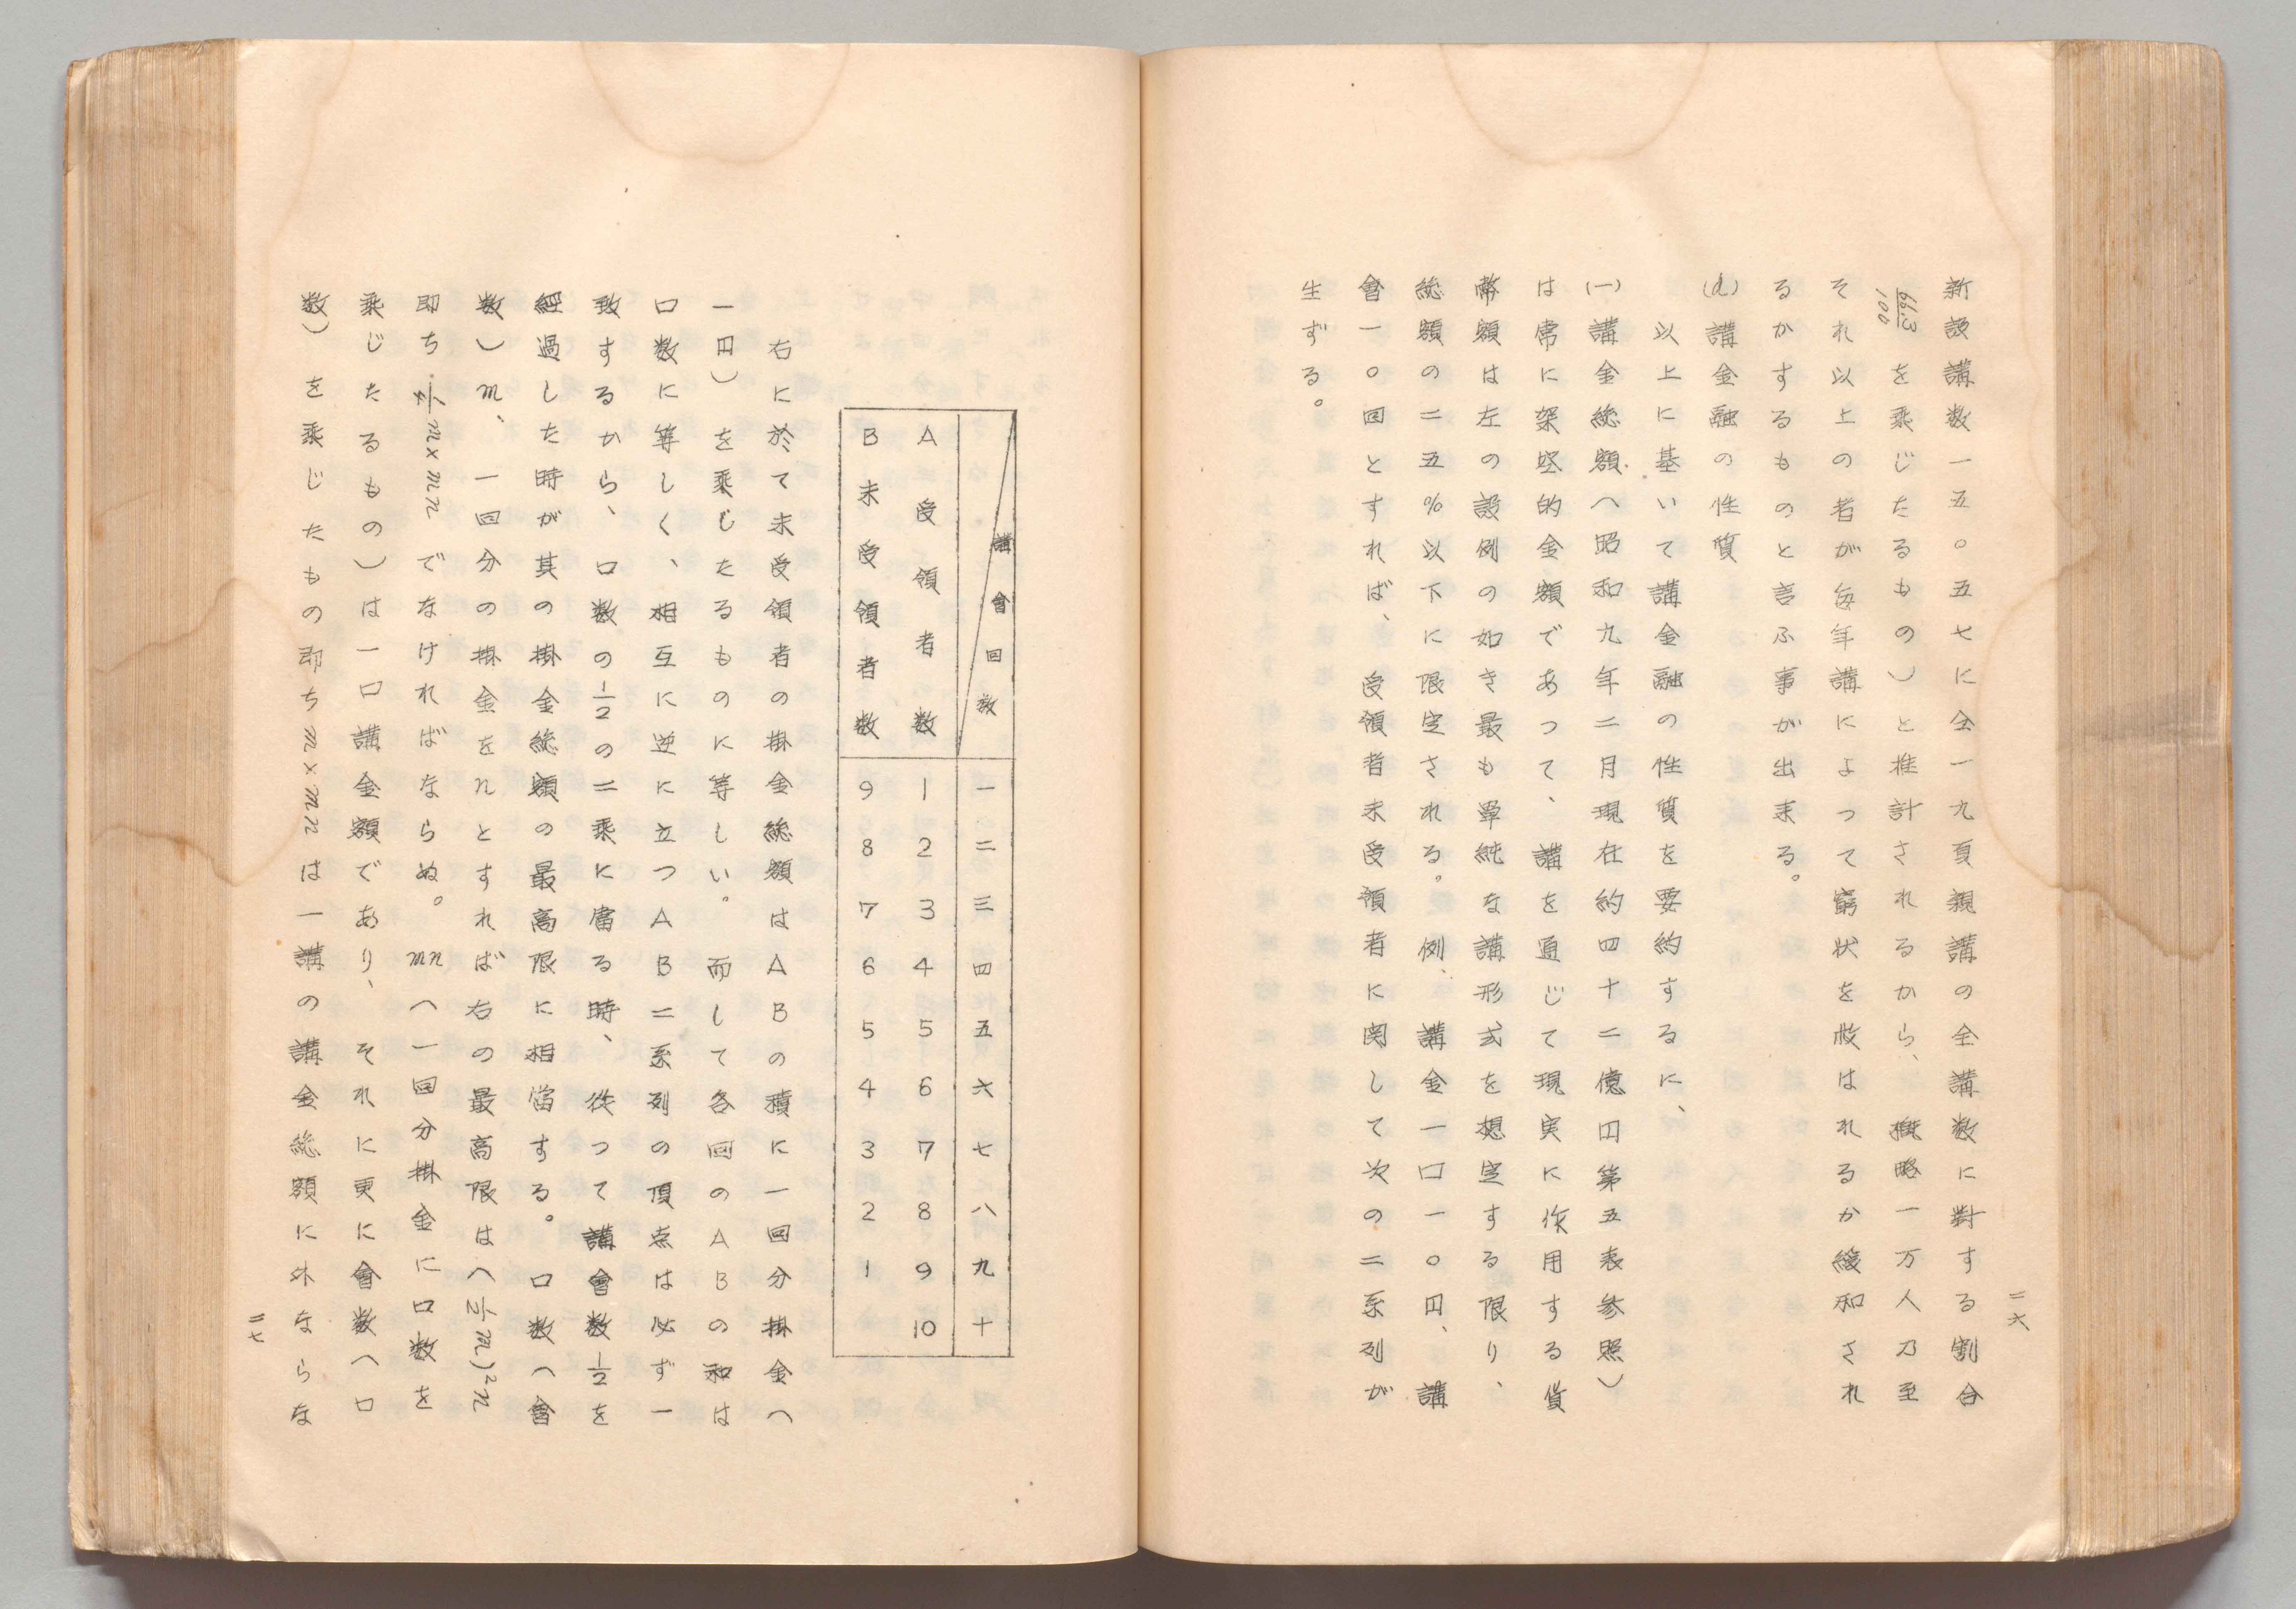 新設講数一五〇五七に全一九頁親講の全講数に對する割合
66.3/100 を乘じたるもの)と推計されるから、概略一万人乃至
それ以上の者が毎年講によつて窮状を救はれるか緩和され
るかするものと言ふ事が出来る。
(d)講金融の性質
以上に基いて講金融の性質を要約するに、
(一)講金総額(昭和九年二月現在約四十二億円第五表参照)
は常に架空的金額であつて、講を通じて現実に作用する貨
幣額は左の設例の如き最も單純な講形式を想定する限り、
総額の二五%以下に限定される。例、講金一口一〇円、講
會一〇回とすれば、受領者未受領者に関して次の二系列が
生ずる。
二六
講會回数 一 二 三 四 五 六 七 八 九 十
A 受領者数 1 2 3 4 5 6 7 8 9 10
B 未受領者数 9 8 7 6 5 4 3 2 1
右に於て未受領者の掛金総額はABの積に一回分掛金(
一円)を乘じたるものに等しい。而して各回のABの和は
口数に等しく、相互に逆に立つAB二系列の頂点は必ず一
致するから、口数の1/2の二乘に當る時、従つて講會数1/2を
經過した時が其の掛金総額の最高限に相當する。口数(會
数)m、一回分の掛金をnとすれば右の最高限は(1/2m)²n
即ち1/4m×mnでなければならぬ。mn(一回分掛金に口数を
乘じたるもの)は一口講金額であり、それに更に會数(口
数)を乘じたもの即ちm×mnは一講の講金総額に外ならな
二七